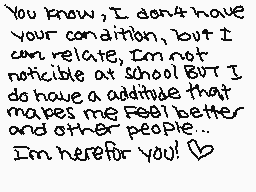 You know, I don4 have
your condition, but I
can relate, Im not
noticible at school BUT I
do have a additude that
makes me Feel better
and other people...
Im here for you! ♡